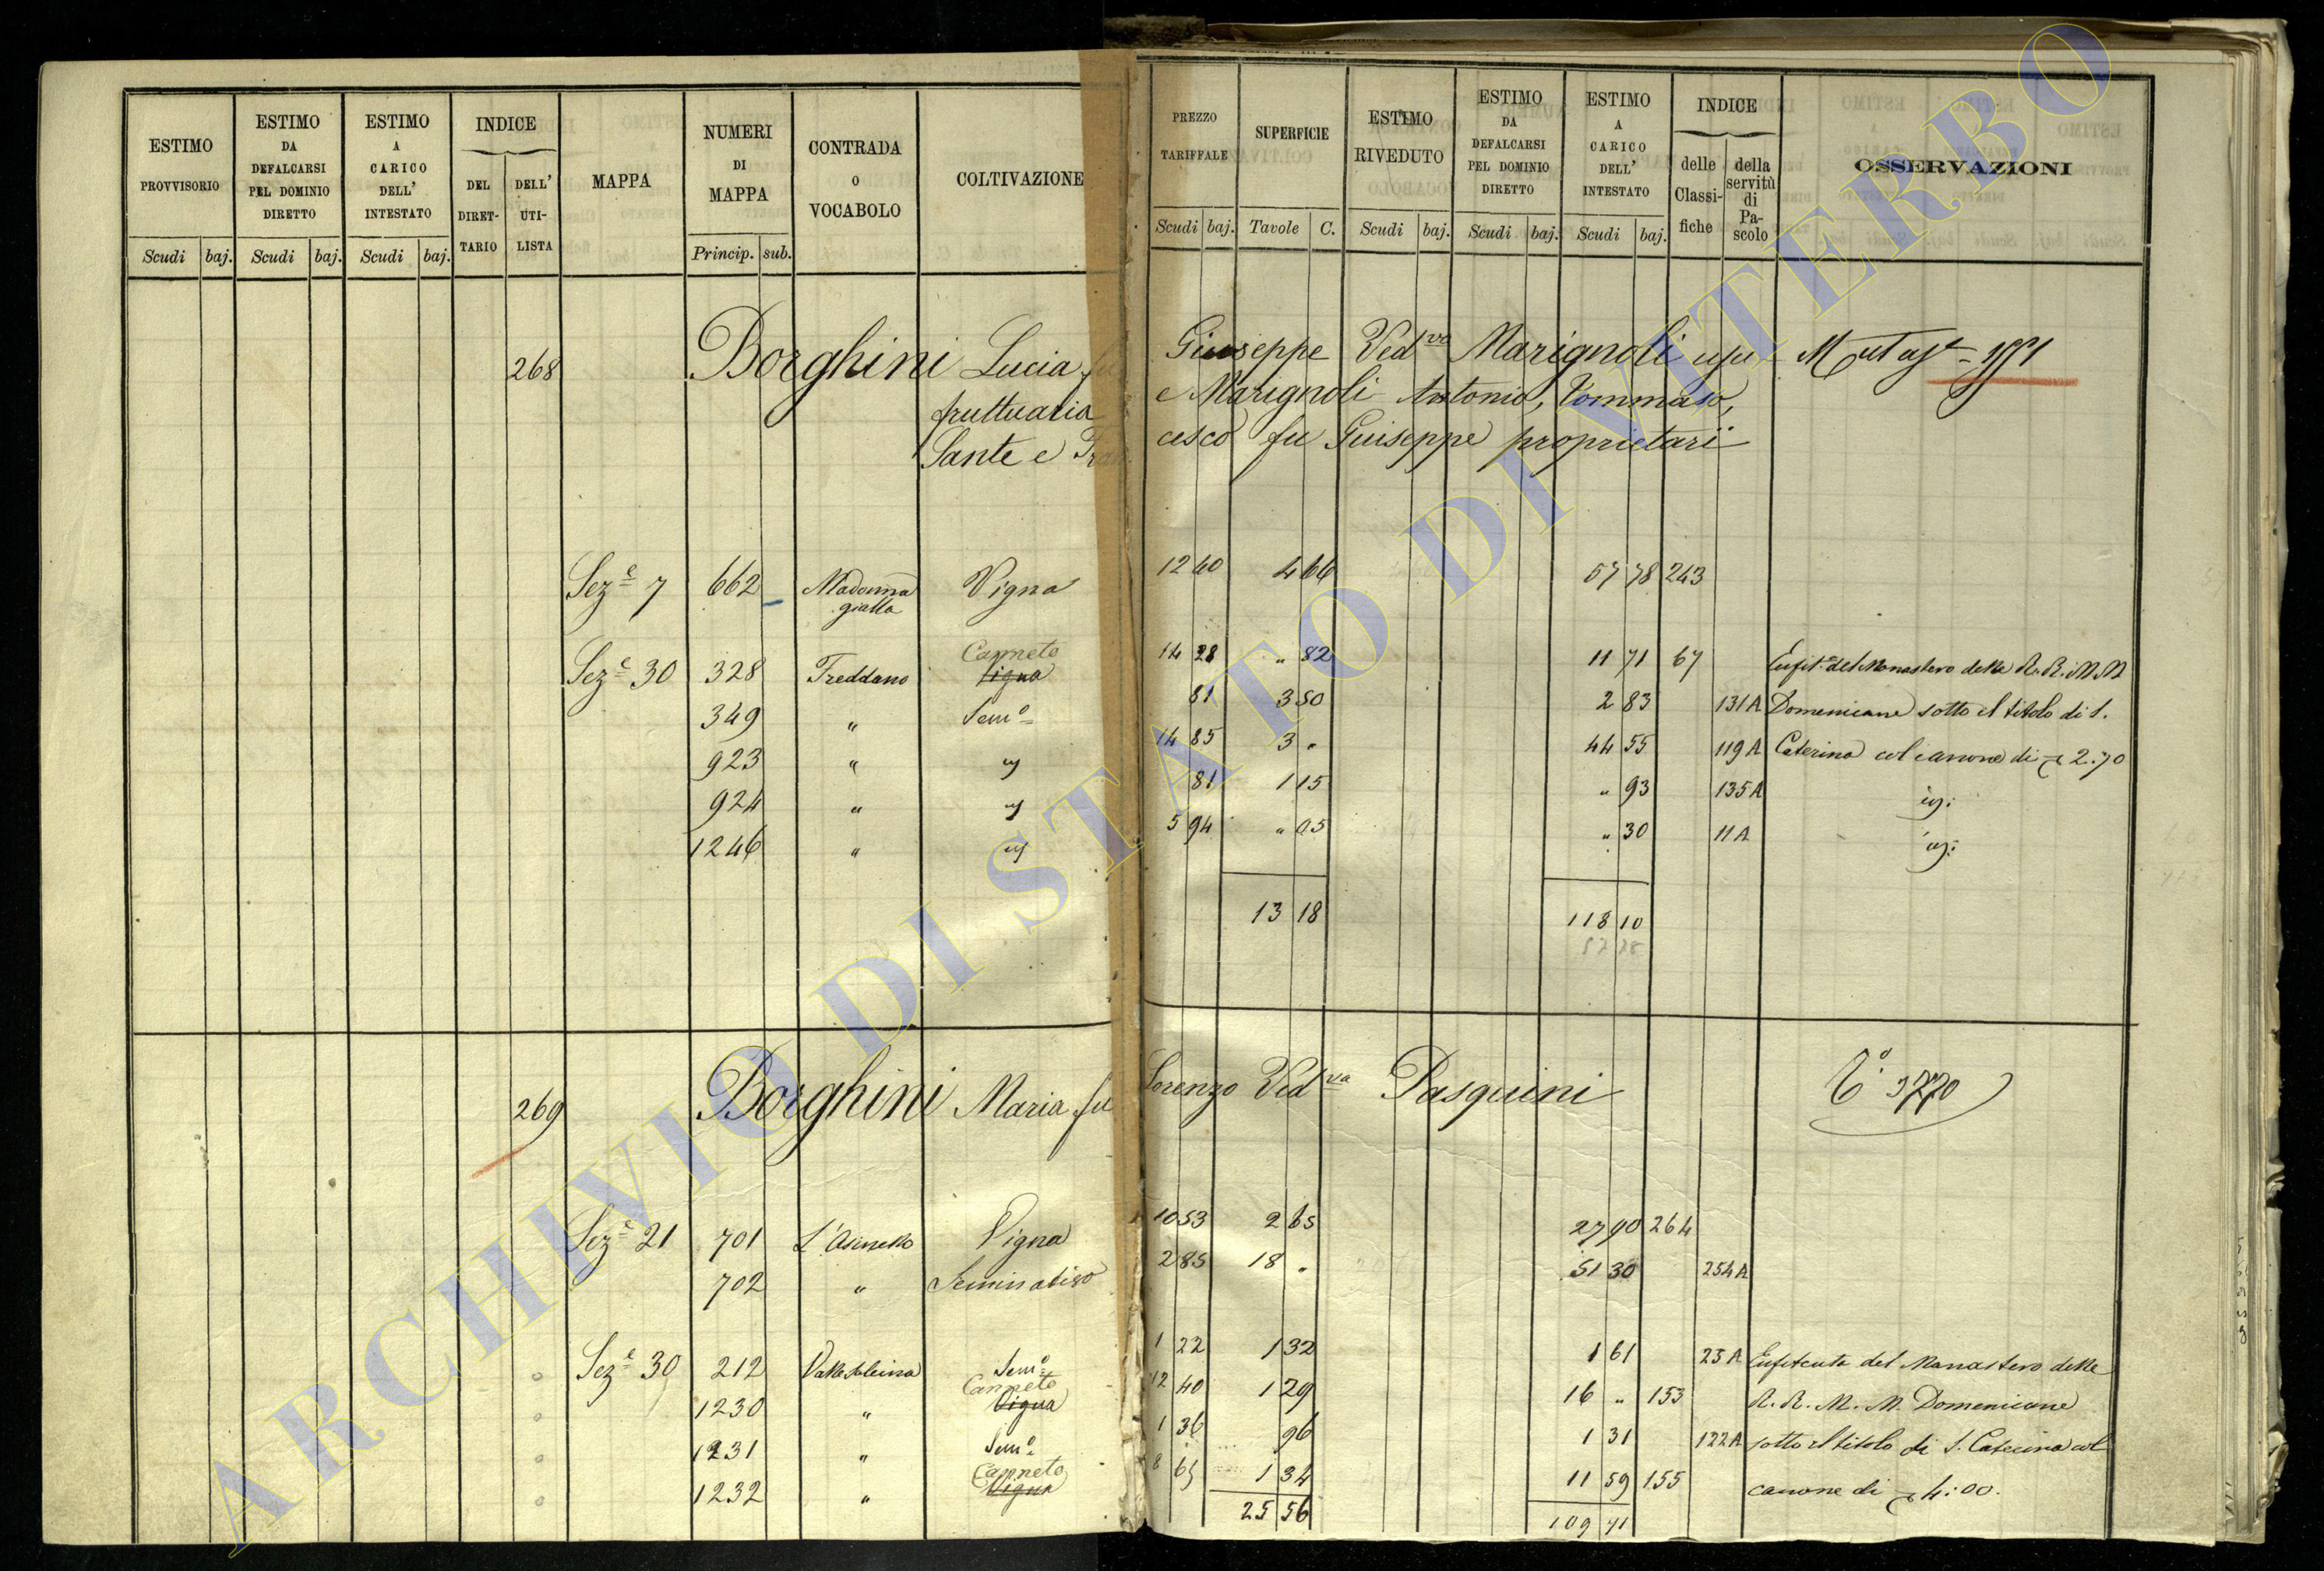 ESTIMO PROVVISORIO
ESTIMO DA DEFALCARSI PEL DOMINIO DIRETTO
ESTIMO A CARICO DELL' INTESTATO
INDICE
DEL DIRETTARIO
DELL' UTILISTA
MAPPA
NUMERI DI MAPPA
CONTRADA O VOCABOLO
COLTIVAZIONE
PREZZO TARIFFALE
SUPERFICIE
ESTIMO RIVEDUTO
ESTIMO DA DEFALCARSI PEL DOMINIO DIRETTO
ESTIMO A CARICO DELL' INTESTATO
INDICE
delle Classifiche
della servitù di Pascolo
OSSERVAZIONI
Scudi baj. Scudi baj. Scudi baj. Princip. sub. Scudi baj. Tavole C. Scudi baj. Scudi baj. Scudi baj.
268 Borghini Lucia fu Giuseppe Ved.va Marignoli usu
fruttuaria e Marignoli Antonio, Tommaso,
Sante e Francesco fu Giuseppe proprietarii
Sez.e 7 662 Madonna gialla Vigna 12 40 4 66 57 78 243
Sez.e 30 328 Freddano Canneto Vigna 14 28 " 82 11 71 67 Enfit. del Monastero delle R.R.M.M
349 " Sem.o 81 3 50 2 83 131A Domenicane sotto il titolo di S.
923 " 14 85 3 " 44 55 119A Caterina col canone di 2:70
924 " 81 1 15 " 93 135A
1246 " 5 94 " 05 " 30 11A
13 18 118 10
269 Borghini Maria fu Lorenzo Ved.va Pasquini
Sez.e 21 701 L'Asinello Vigna 10 53 2 65 27 90 264
702 " Seminativo 2 85 18 " 51 30 254A
Sez.e 30 212 Sem.o 1 22 1 32 1 61 23A Enfiteuta del Monastero delle
1230 " Canneto Vigna 12 40 1 29 16 " 153 R.R.M.M. Domenicane
1231 " Sem.o 1 36 96 1 31 122A sotto il titolo di S. Caterina col
1232 " Canneto Vigna 8 65 1 34 11 59 155 canone di 4:00.
25 56 109 71
ARCHIVIO DI STATO DI VITERBO